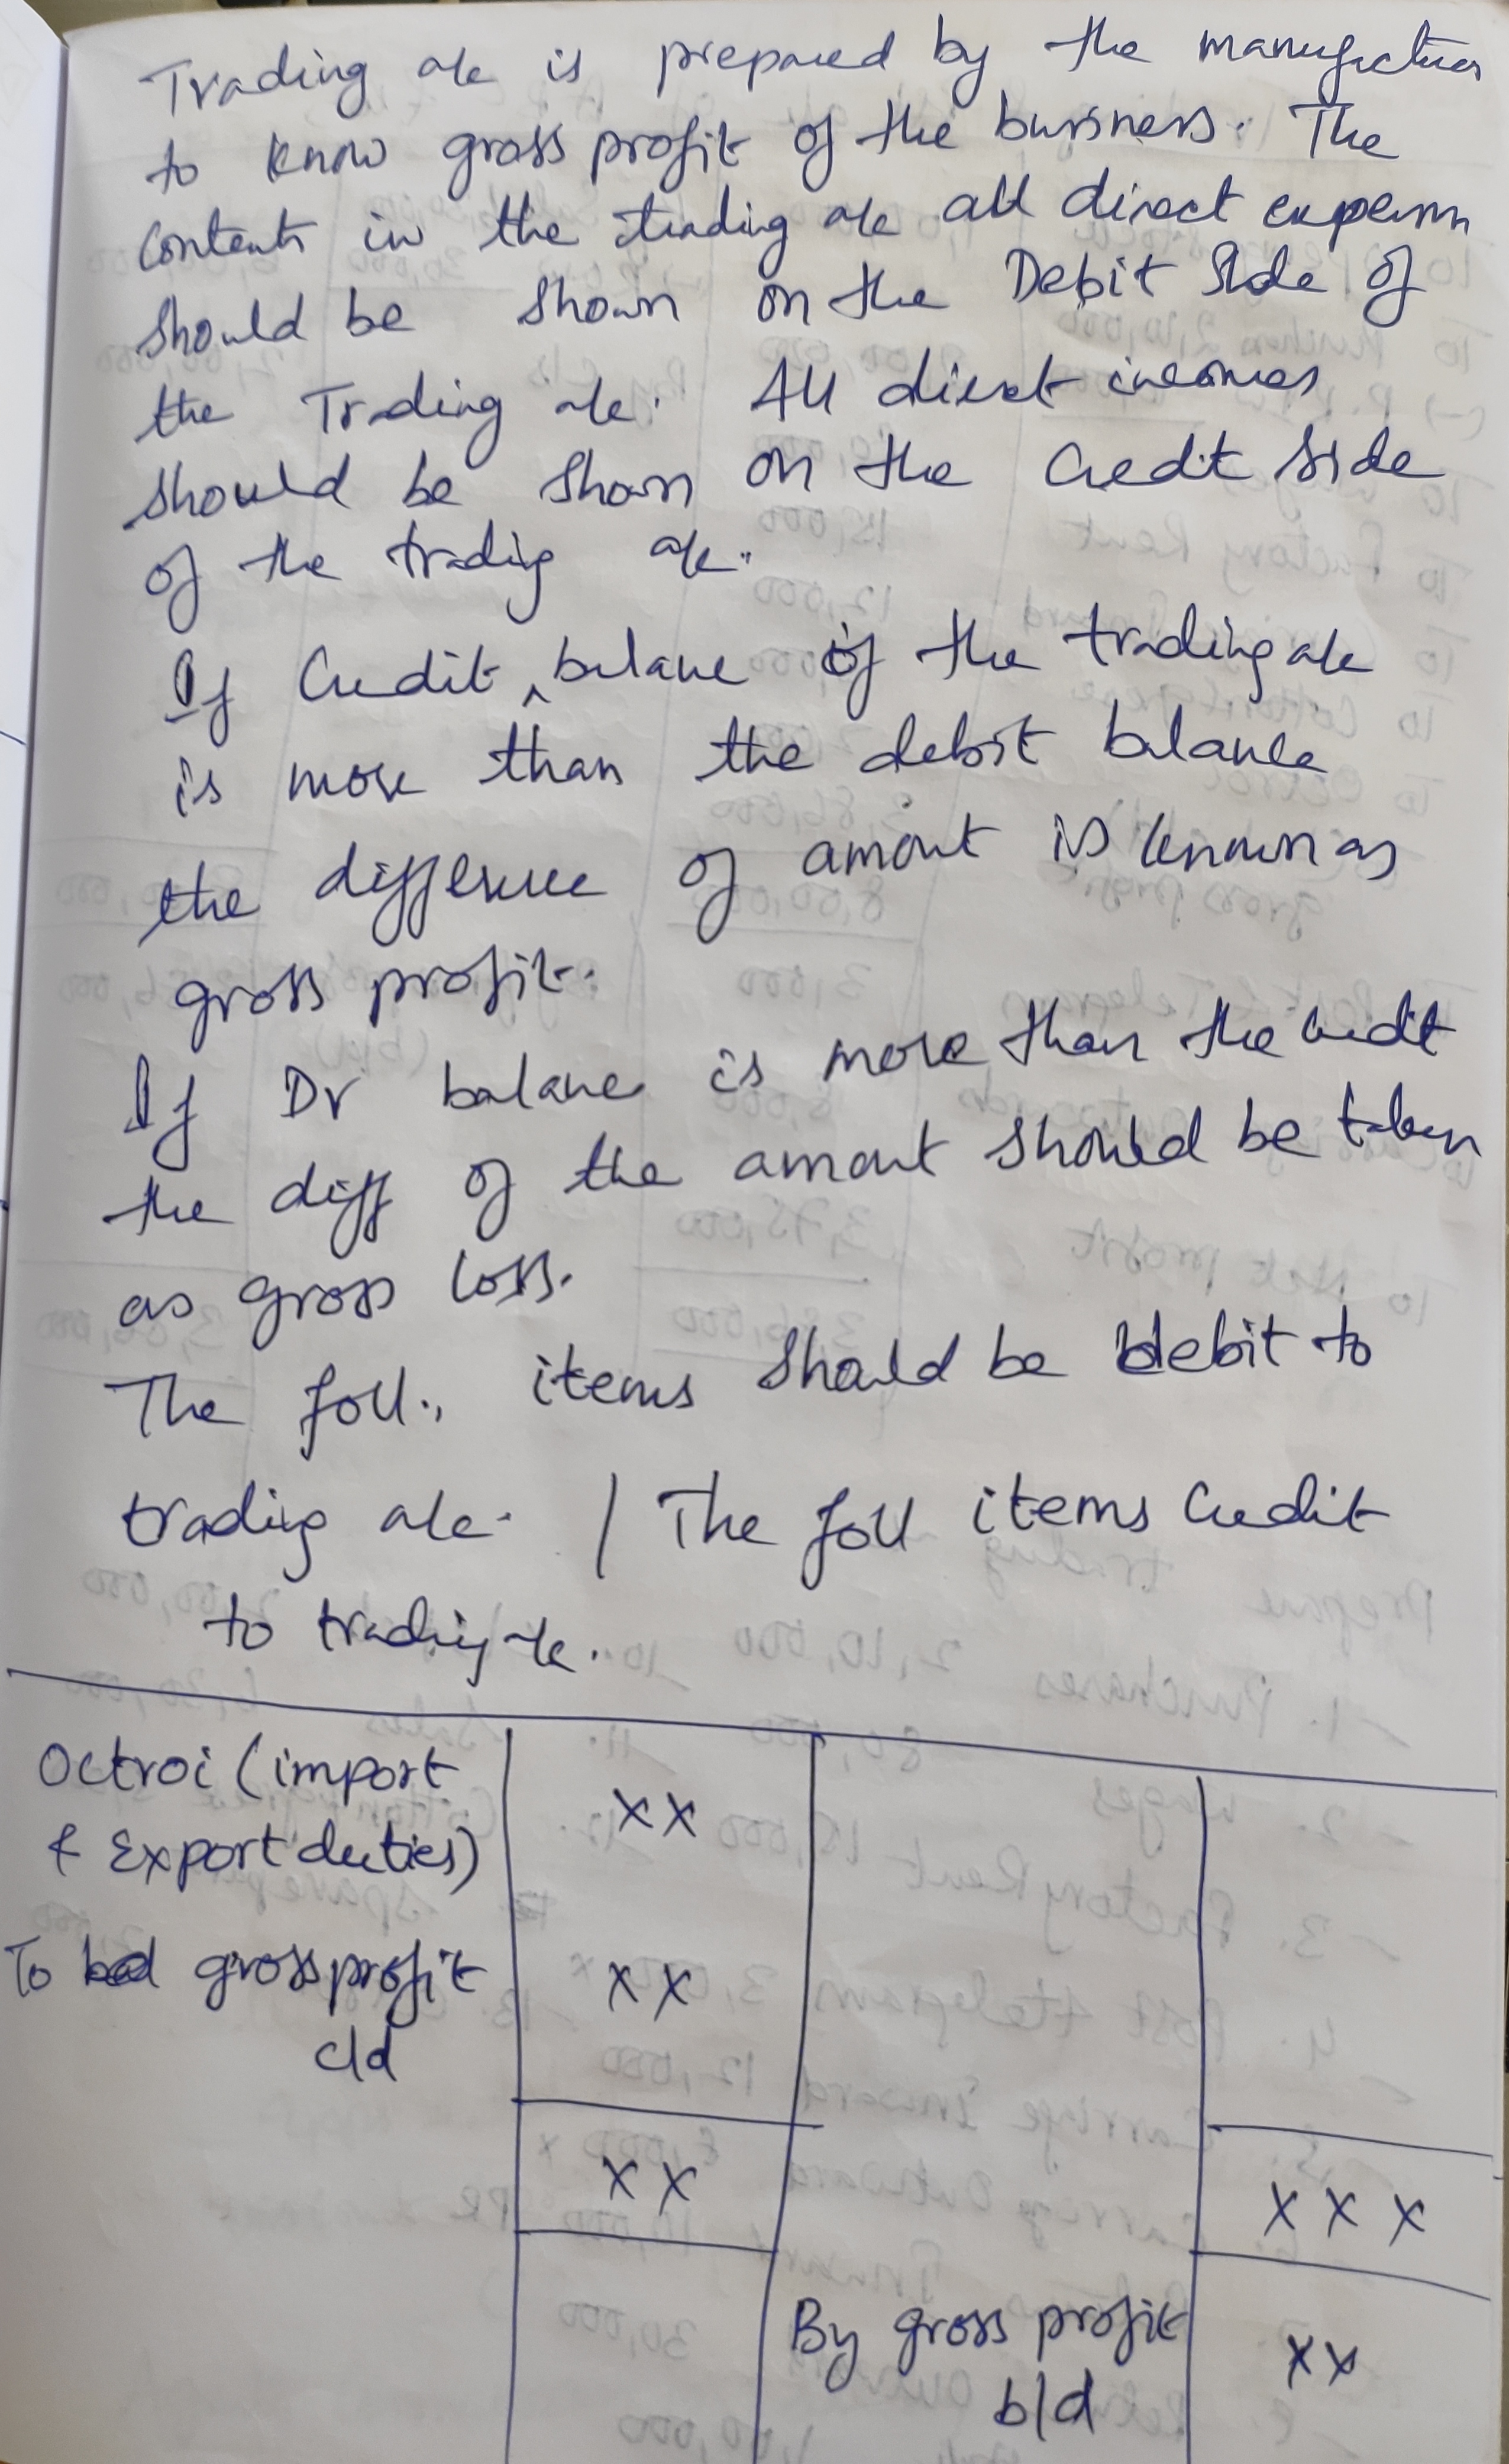 Trading a/c is prepared by the manufactures
to know gross profit of the business. The
Contents in the trading a/c all direct expenses
should be shown on the Debit Side of
the Trading a/c. All direct incomes
should be shown on the Credit Side
of the trading a/c.
If Credit balance of the trading a/c
is more than the debit balance
the difference of amount is known as
gross profit.
If Dr balance is more than the credit
the diff of the amount should be taken
as gross loss.
The foll., items should be debit to
trading a/c. / The foll items Credit
to trading a/c.
Octroi (import
& Export duties) XX
To gross profit XX
c/d
XX XXX
By gross profit XX
b/d